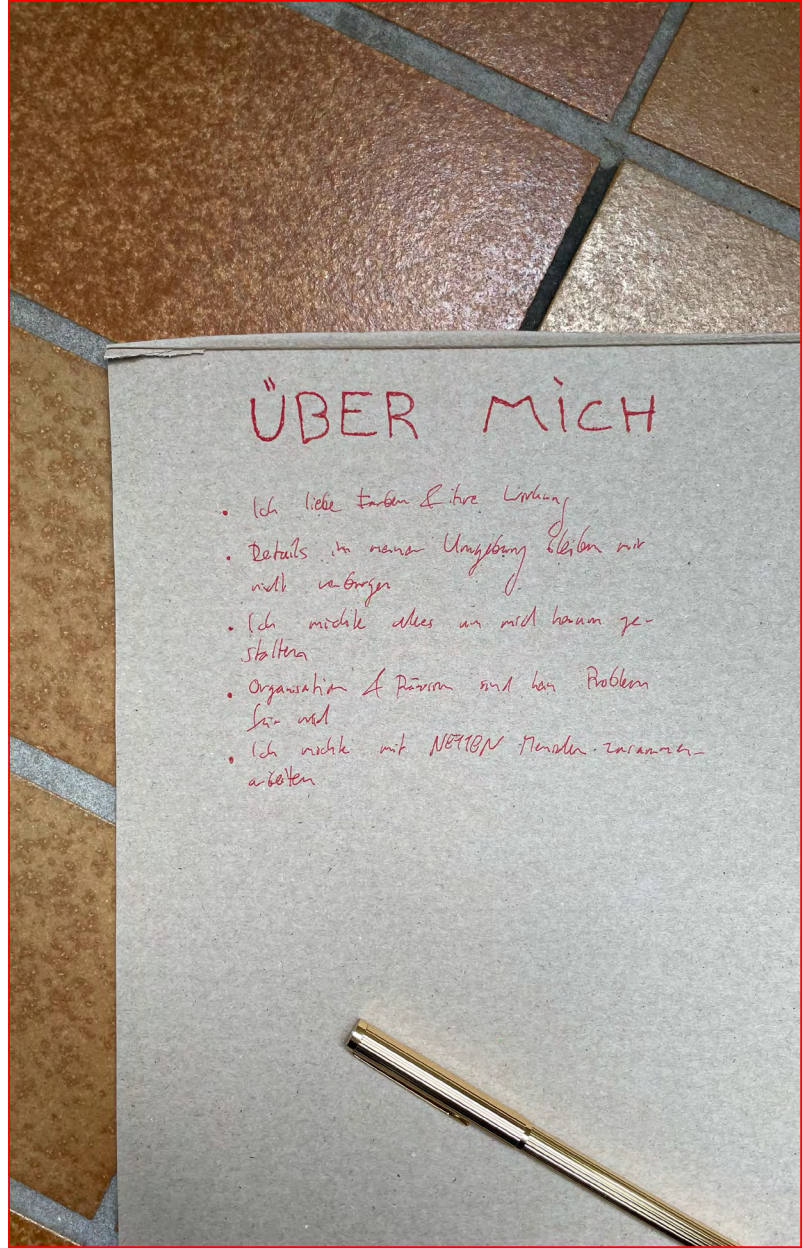 ÜBER MICH
• Ich liebe Farben & ihre Wirkung
• Details in meiner Umgebung bleiben mir
nicht verborgen
• Ich möchte alles um mich herum ge-
stalten
• Organisation & Präzision sind kein Problem
für mich
• Ich möchte mit NETTEN Menschen zusammen-
arbeiten